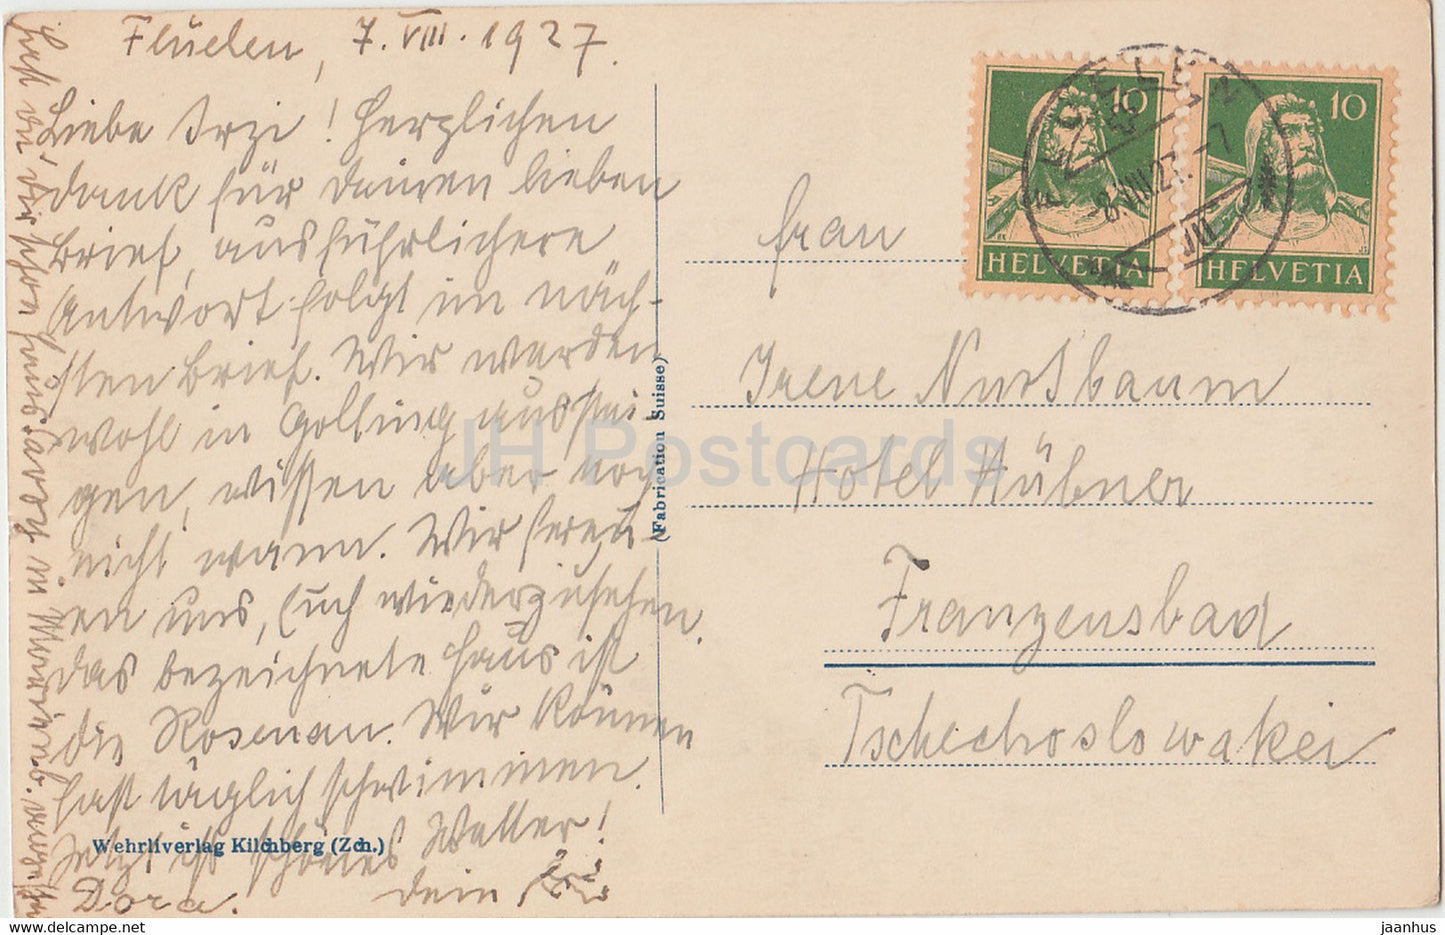 Fluelen, 7. VIII. 1927.
Liebe Irzi! Herzlichen
dank für Deinen lieben
Brief, ausführlichere
Antwort folgt im näch-
sten Brief. Wir werden
wohl in Golling aussstei-
gen, wissen aber noch
nicht wann. Wir freu-
en uns, Euch wiederzusehen.
Das bezeichnete Haus ist
die Rosenau. Wir können
fast täglich schwimmen.
Jetzt ist schönes Wetter!
Dora. Dein
Hast Du Dir schon in
Wehrliverlag Kilchberg (Zch.)
(Fabrication Suisse)
10
HELVETIA
10
HELVETIA
FLÜELEN
-8.VIII.27.-7
Frau
Irene Nussbaum
Hotel Hübner
Franzensbad
Tschechoslowakei
JH Postcards
delcampe.net
jaanhus